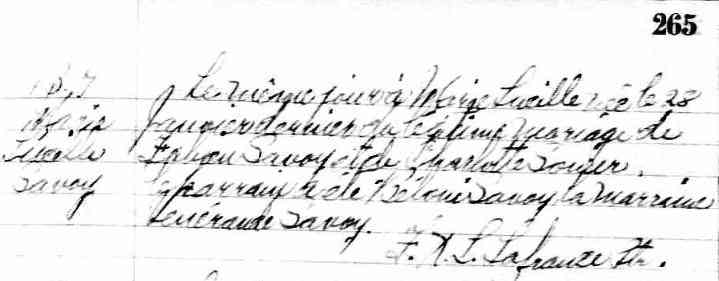 265
B. 7
Marie
Lucille
Savoy
Le même jour à Marie Lucille née le 28
janvier dernier du légitime mariage de
Savoy et de Charlotte
le parrain a été Savoy la marraine
Vénérande Savoy.
F. X. L. Lafrance Ptr.